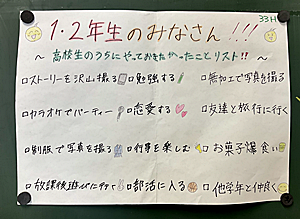 33H
1・2年生のみなさん!!!
～ 高校生のうちにやっておきたかったことリスト!! ～
□ストーリーを沢山撮る □勉強する □無加工で写真を撮る
□カラオケでパーティー □恋愛する □友達と旅行に行く
□制服で写真を撮る □行事を楽しむ □お菓子爆食い
□放課後遊びに行く □部活に入る □他学年と仲良く